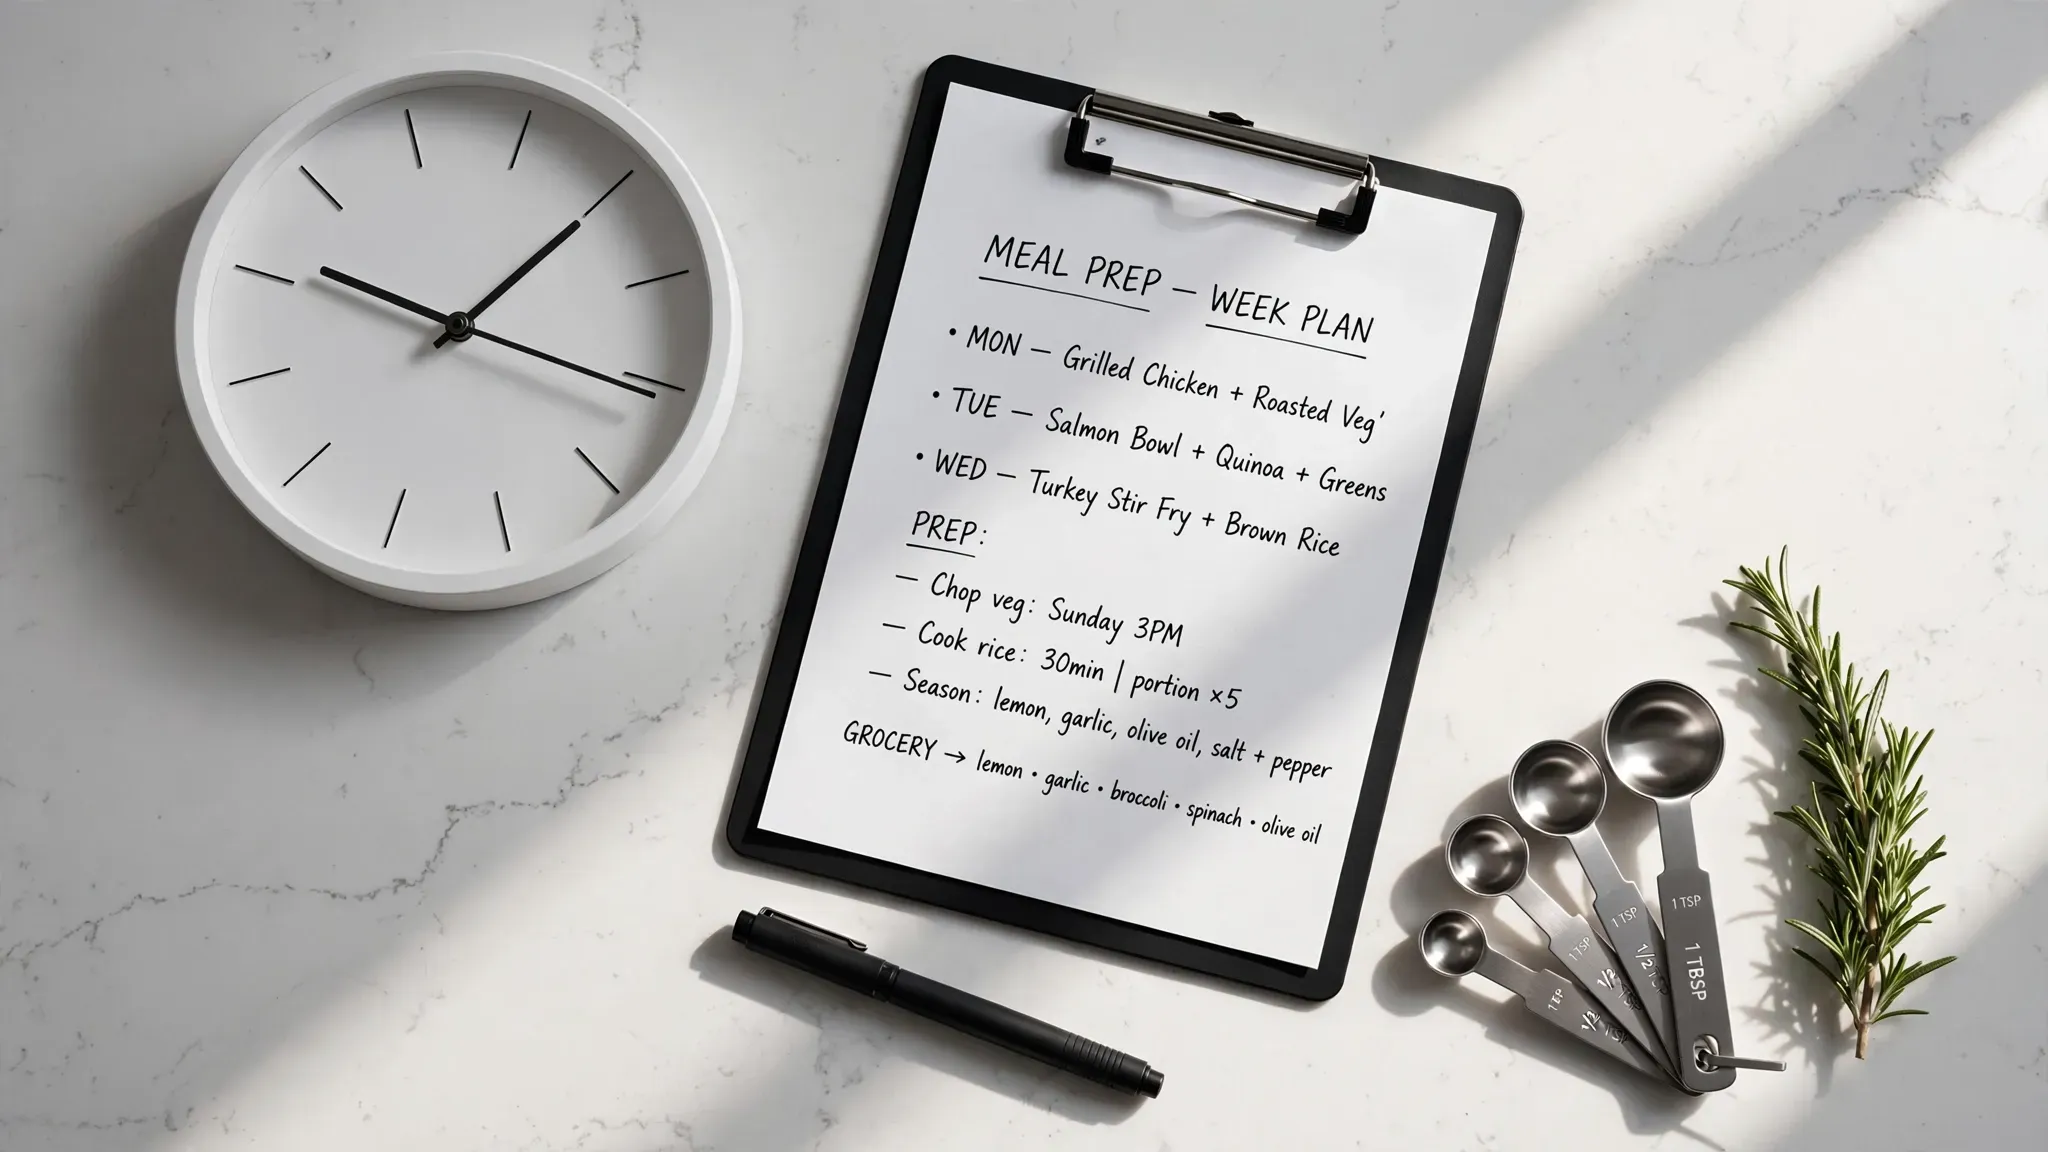 MEAL PREP — WEEK PLAN
• MON — Grilled Chicken + Roasted Veg'
• TUE — Salmon Bowl + Quinoa + Greens
• WED — Turkey Stir Fry + Brown Rice
PREP:
— Chop veg: Sunday 3PM
— Cook rice: 30min | portion ×5
— Season: lemon, garlic, olive oil, salt + pepper
GROCERY → lemon • garlic • broccoli • spinach • olive oil
1 TSP
1 TBSP
1 TSP
1/2 TSP
1 TSP
1/2 TSP
1/2 TSP